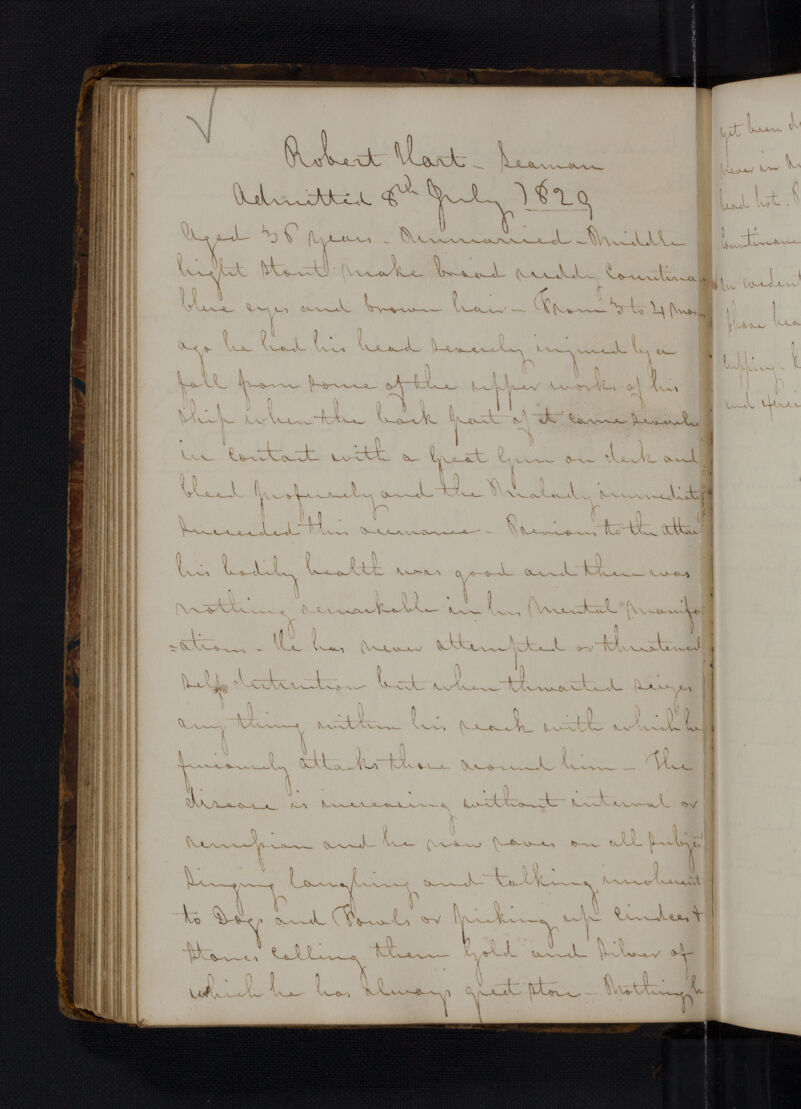 Robert Hart - Seaman
Admitted 8th July 1829
Aged 38 years - Unmarried - Middle
hight stout make broad ruddy Countina
blue eyes and brown hair - From 3 to 4 Mon
ago he had his head severely injured by a
fall from some of the upper works of his
Ship when the back part of it came severely
in contact with a Great Gun on deck and
bleed profusely and the Malady immediately
succeeded this occurrance - Previous to the attac
his bodily health was good and there was
nothing remarkable in his Mental Manifes
=ations - He has never attempted or threatened
self destruction but when thwarted seizes
any thing within his reach with which he
furiously attacks those around him - The
disease is increasing without interval or
remission and he now raves on all subjects
Singing laughing and talking incoherent
to Dogs and Fowls or picking up Cinders &
Stones calling them Gold and Silver of
which he has always great store - Nothing h
yet been
never in
head hot -
Countinance
an evident
shave hea
cupping -
and